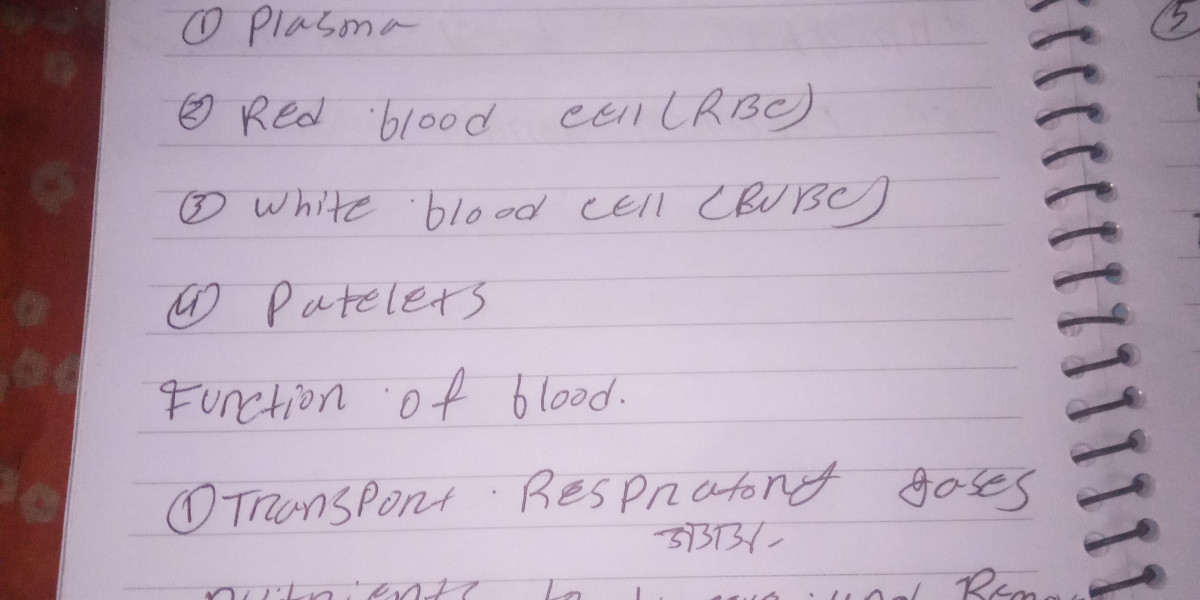 ① Plasma
② Red blood cell (RBC)
③ White blood cell (WBC)
④ Patelets
Function of blood.
① Transport Respriatory gases
nutrients to
and
⑤